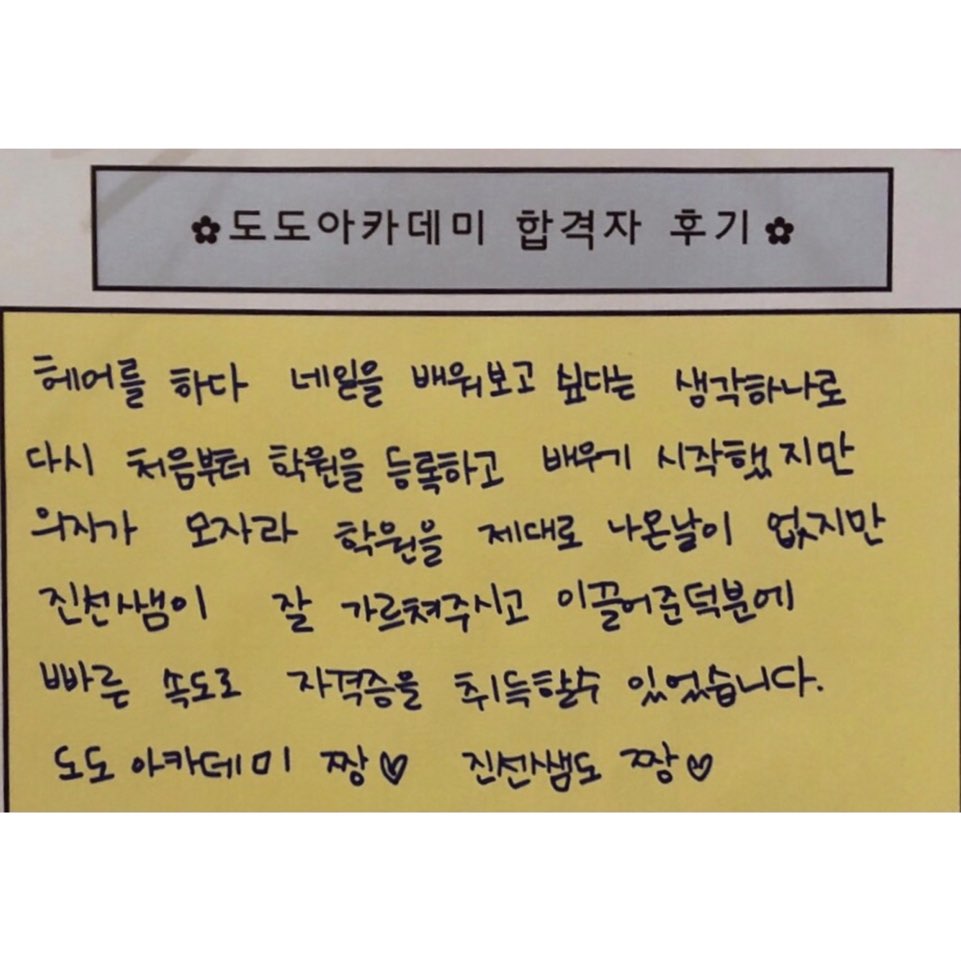 ✿도도아카데미 합격자 후기✿
헤어를 하다 네일을 배워보고 싶다는 생각하나로
다시 처음부터 학원을 등록하고 배우기 시작했지만
의지가 모자라 학원을 제대로 나온날이 없지만
진선쌤이 잘 가르쳐주시고 이끌어준덕분에
빠른 속도로 자격증을 취득할수 있었습니다.
도도아카데미 짱♡ 진선쌤도 짱♡